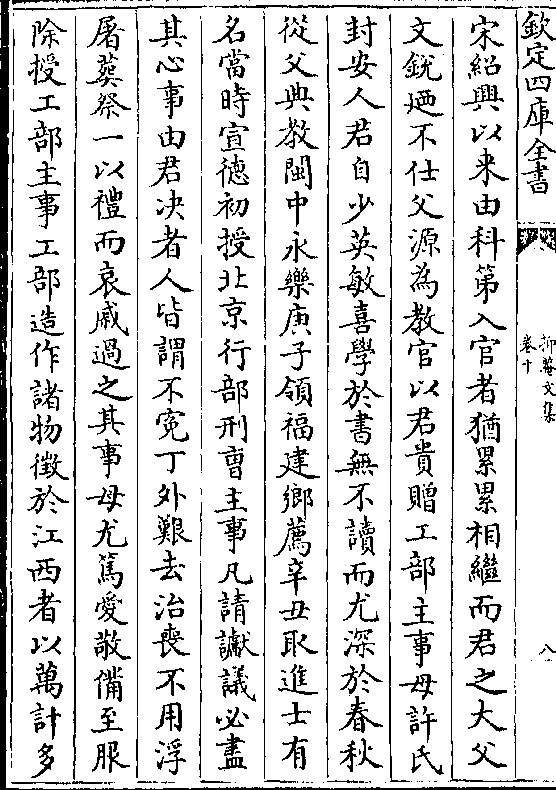 欽定四庫全書
抑菴文集
卷十
八
宋紹興以来由科第入官者猶累累相繼而君之大父
文銳𢌞不仕父源為教官以君貴贈工部主事母許氏
封安人君自少英敏喜學於書無不讀而尤深於春秋
從父典教閩中永樂庚子領福建鄉薦辛丑取進士有
名當時宣德初授北京行部刑曹主事凡請讞議必盡
其心事由君决者人皆謂不寃丁外艱去治喪不用浮
屠葬祭一以禮而哀戚過之其事母尤篤愛敬備至服
除授工部主事工部造作諸物徵於江西者以萬計多